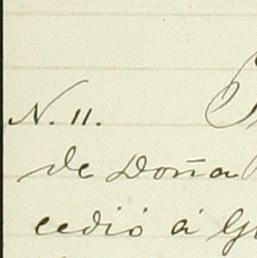 N. 11.
de Doña
cedió á